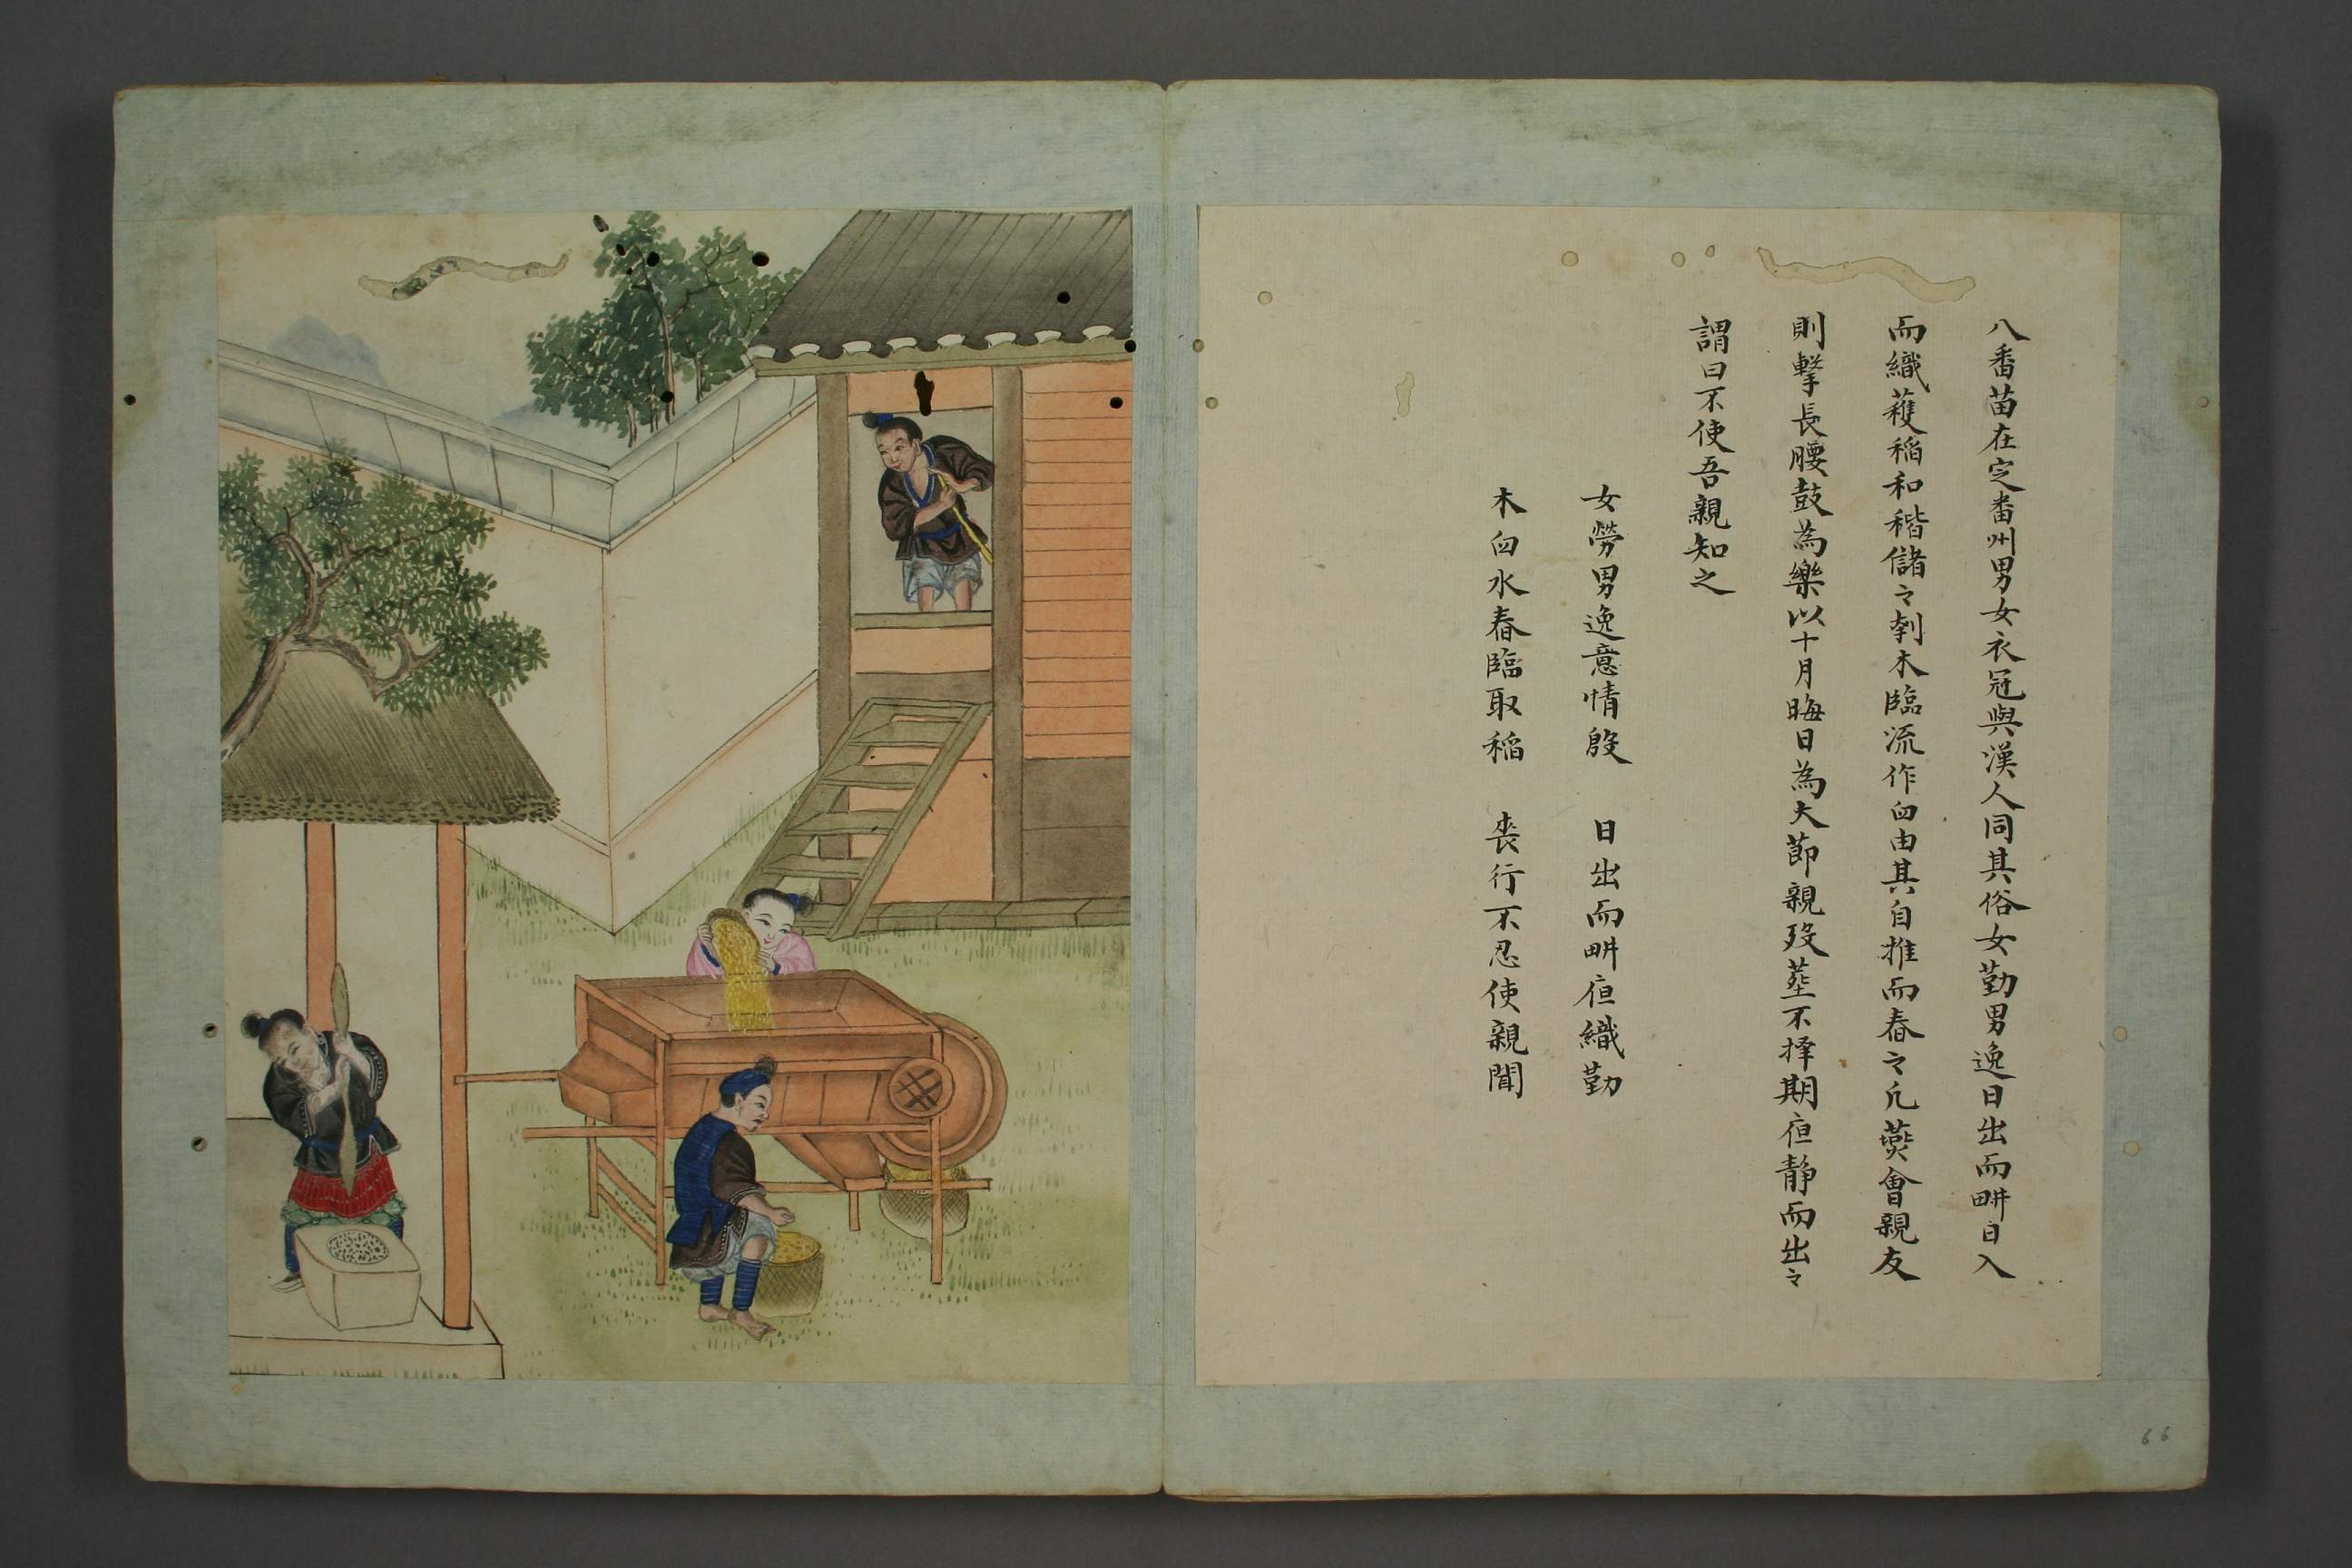 八番苗在定番州男女衣冠與漢人同其俗女勤男逸日出而畊日入
而織穫稲和稭儲々刳木臨流作臼由其自推而舂々凢䕼會親友
則擊長腰鼓為樂以十月晦日為大節親歿塟不擇期夜静而出々
謂曰不使吾親知之
女勞男逸意情殷 日出而畊夜織勤
木臼水舂臨取稲 喪行不忍使親聞
66